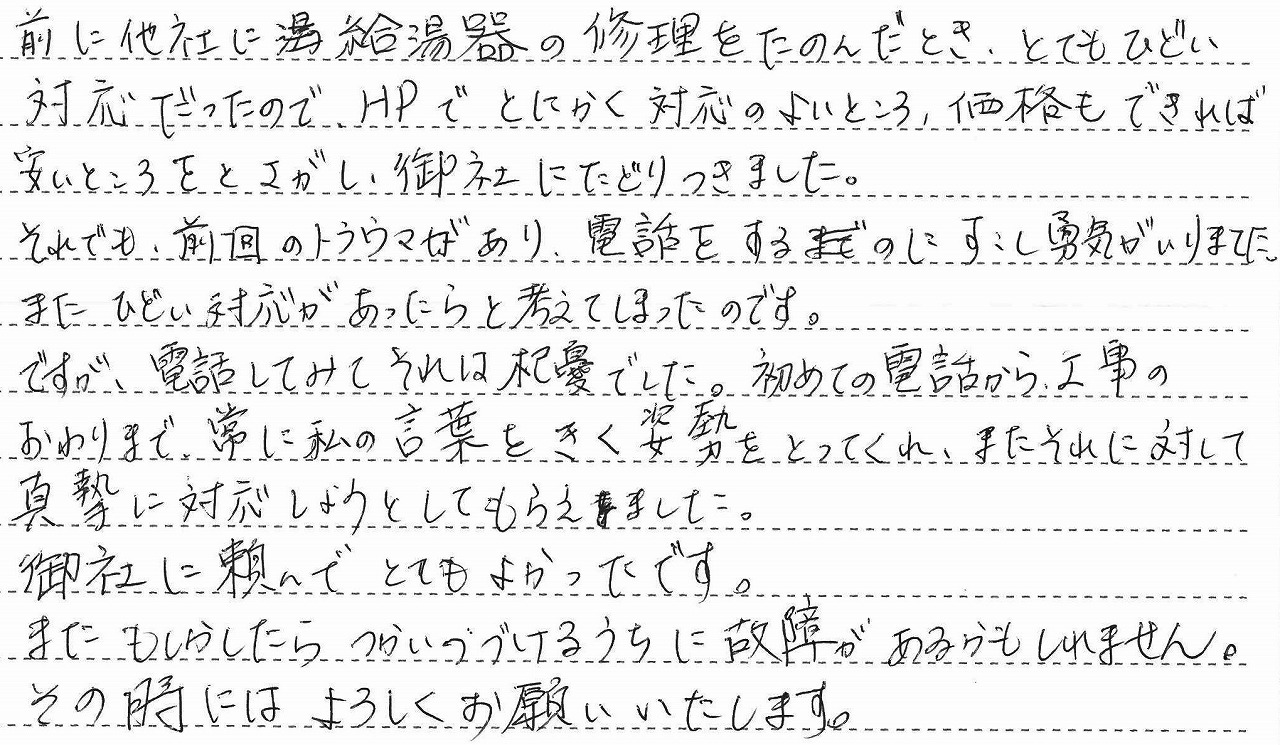 前に他社に給湯器の修理をたのんだとき、とてもひどい
対応だったので、HPでとにかく対応のよいところ、価格もできれば
安いところをとさがし、御社にたどりつきました。
それでも、前回のトラウマがあり、電話をするのにすこし勇気がいりました。
またひどい対応があったらと考えてしまったのです。
ですが、電話してみてそれは杞憂でした。初めての電話から、工事の
おわりまで、常に私の言葉をきく姿勢をとってくれ、またそれに対して
真摯に対応しようとしてもらえました。
御社に頼んでとてもよかったです。
またもしかしたらつかいつづけるうちに故障があるかもしれません。
その時にはよろしくお願いいたします。